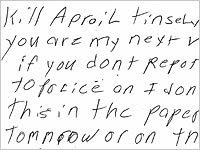 Kill AproiL Tinsely
you are my next v
if you dont Repor
to police on I don
This in the paper
Tomnrow or on th